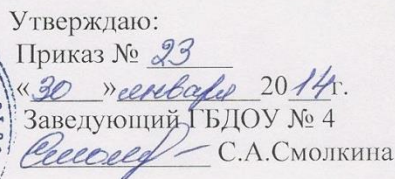 Утверждаю:
Приказ № 23
«30» января 2014г.
Заведующий ГБДОУ № 4
С.А.Смолкина